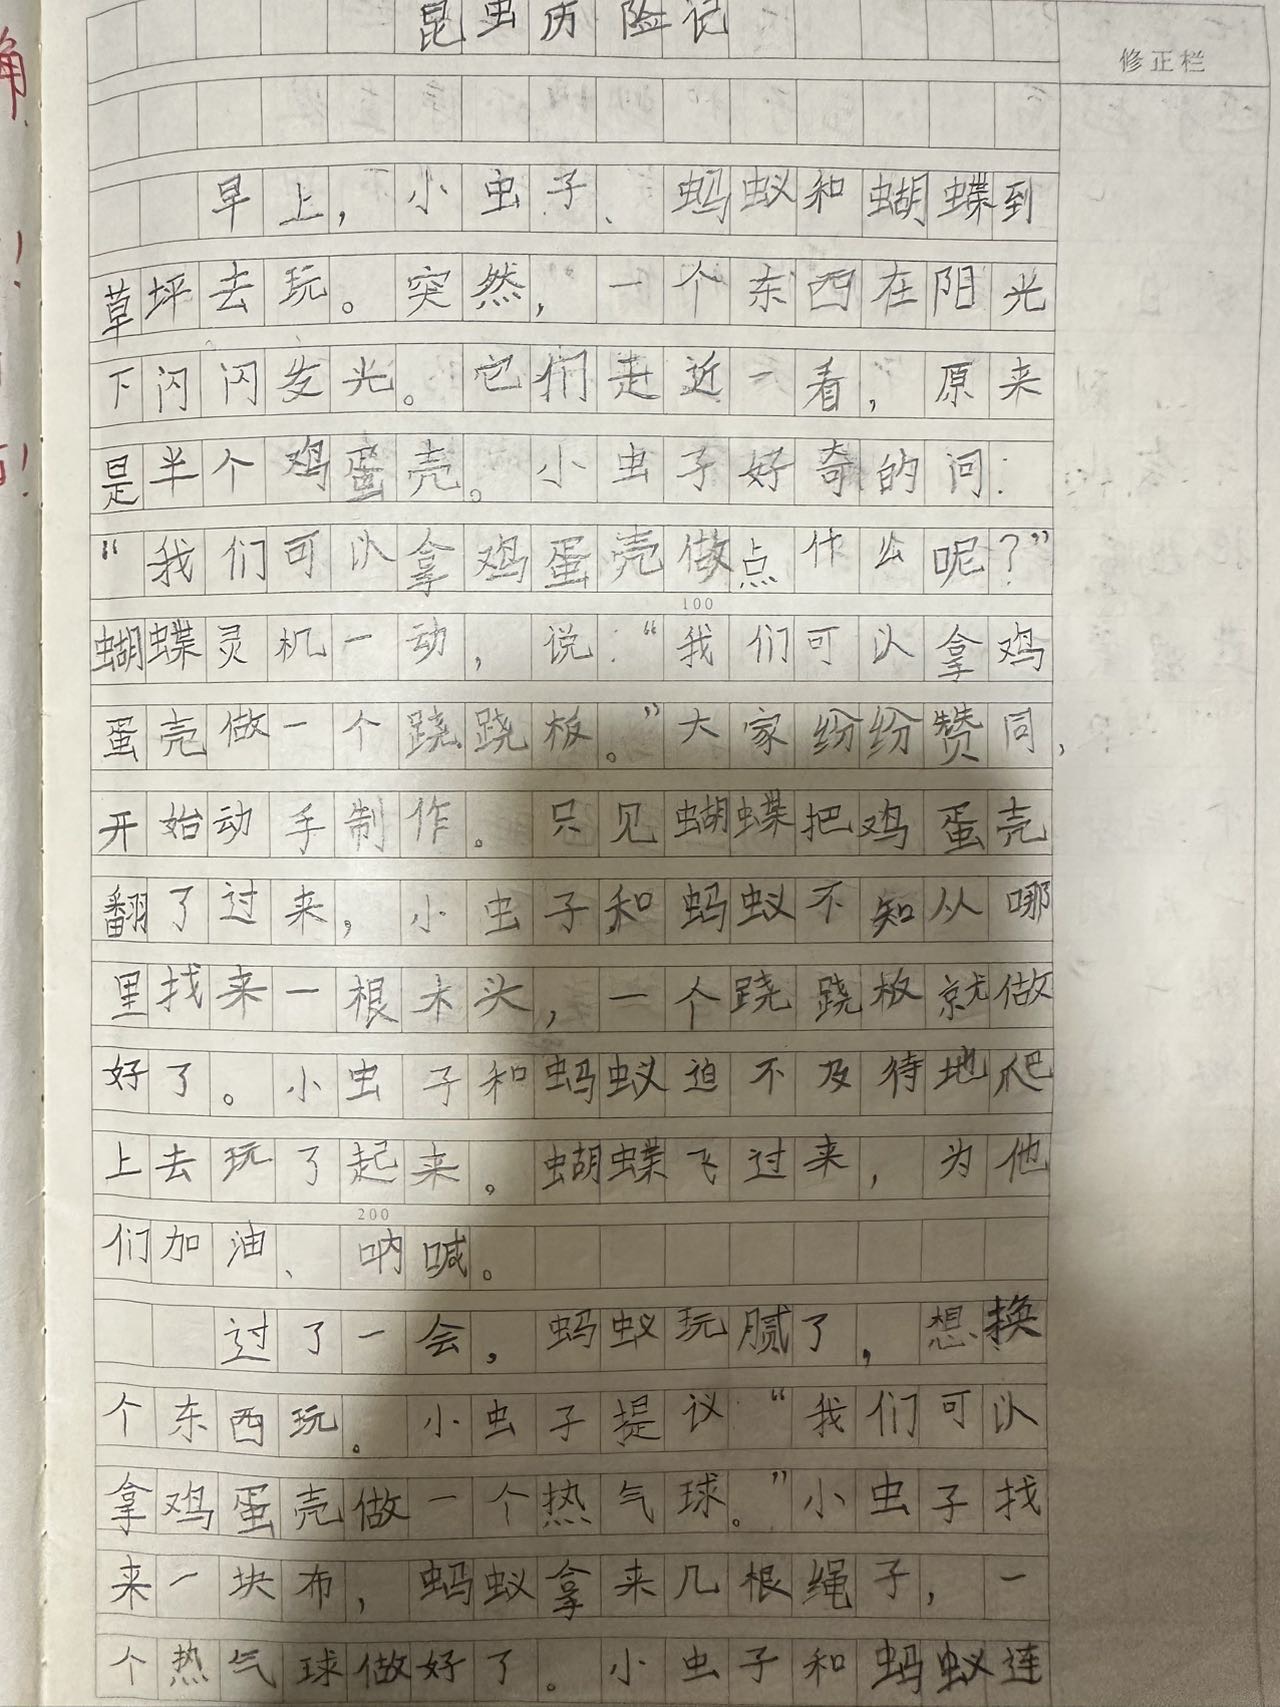 昆虫历险记
修正栏
早上，小虫子、蚂蚁和蝴蝶到
草坪去玩。突然，一个东西在阳光
下闪闪发光。它们走近一看，原来
是半个鸡蛋壳。小虫子好奇的问：
“我们可以拿鸡蛋壳做点什么呢？”
100
蝴蝶灵机一动，说：“我们可以拿鸡
蛋壳做一个跷跷板。”大家纷纷赞同，
开始动手制作。只见蝴蝶把鸡蛋壳
翻了过来，小虫子和蚂蚁不知从哪
里找来一根木头，一个跷跷板就做
好了。小虫子和蚂蚁迫不及待地爬
上去玩了起来。蝴蝶飞过来，为他
200
们加油、呐喊。
过了一会，蚂蚁玩腻了，想换
个东西玩。小虫子提议“我们可以
拿鸡蛋壳做一个热气球。”小虫子找
来一块布，蚂蚁拿来几根绳子，一
个热气球做好了。小虫子和蚂蚁连